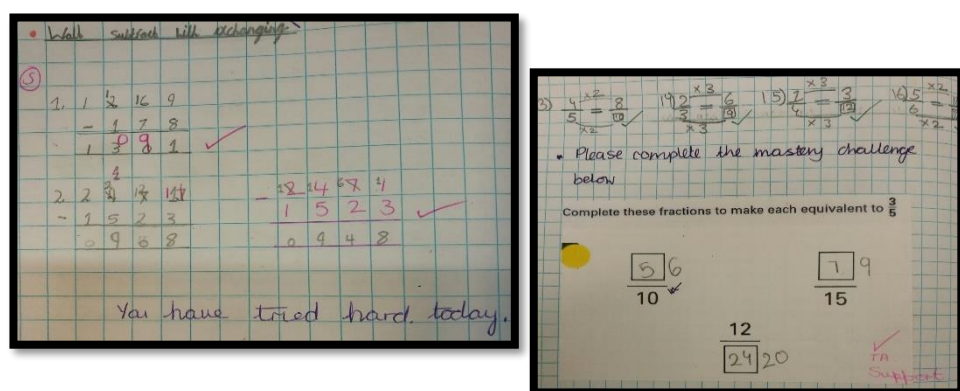 subtract with exchanging
S
1. 1 2 16 9
- 1 7 8
1 0 9 1
2. 2
- 1 5 2 3
0 9 6 8
- 1 5 2 3
0 9 4 8
You have tried hard today.
3) 4/5 = 8/10
×2
×2
14) 2/3 = 6/9
×3
×3
15) = 3
×3
×3
16) 5/6 =
×2
×2
• Please complete the mastery challenge
below
Complete these fractions to make each equivalent to 3/5
5 6
10
7 9
15
12
24 20
TA
Support